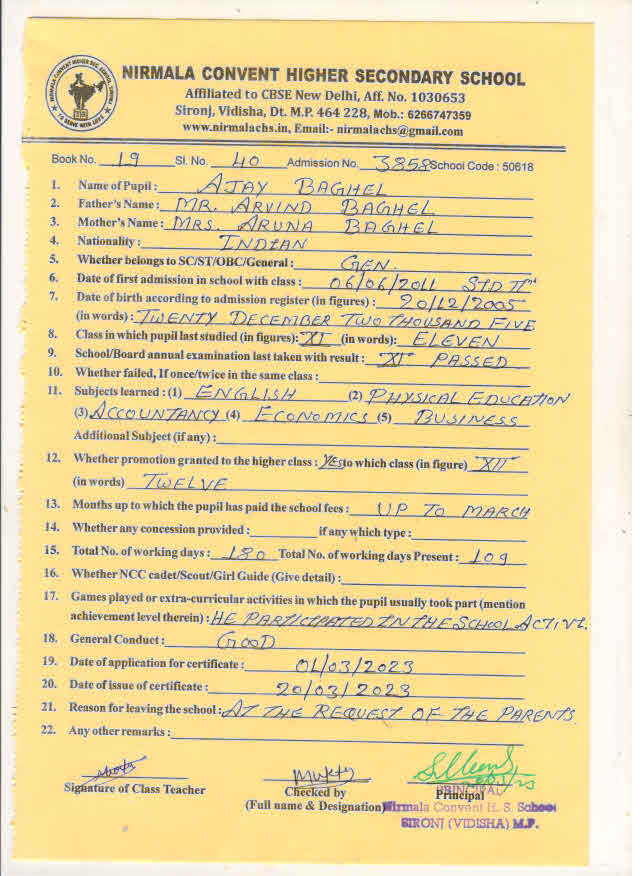 NIRMALA CONVENT HIGHER SECONDARY SCHOOL
Affiliated to CBSE New Delhi, Aff. No. 1030653
Sironj, Vidisha, Dt. M.P. 464 228, Mob.: 6266747359
www.nirmalachs.in, Email:- nirmalachs@gmail.com
Book No. 19 Sl. No. 40 Admission No. 3858 School Code : 50618
1. Name of Pupil : AJAY BAGHEL
2. Father's Name : MR. ARVIND BAGHEL
3. Mother's Name : MRS. ARUNA BAGHEL
4. Nationality : INDIAN
5. Whether belongs to SC/ST/OBC/General : GEN.
6. Date of first admission in school with class : 06/06/2011 STD II
7. Date of birth according to admission register (in figures) : 20/12/2005
(in words) : TWENTY DECEMBER TWO THOUSAND FIVE
8. Class in which pupil last studied (in figures): "XI" (in words): ELEVEN
9. School/Board annual examination last taken with result : "XI" PASSED
10. Whether failed, If once/twice in the same class :
11. Subjects learned : (1) ENGLISH (2) PHYSICAL EDUCATION
(3) ACCOUNTANCY (4) ECONOMICS (5) BUSINESS
Additional Subject (if any) :
12. Whether promotion granted to the higher class : YES to which class (in figure) "XII"
(in words) TWELVE
13. Months up to which the pupil has paid the school fees : UP TO MARCH
14. Whether any concession provided : if any which type :
15. Total No. of working days : 180 Total No. of working days Present : 109
16. Whether NCC cadet/Scout/Girl Guide (Give detail) :
17. Games played or extra-curricular activities in which the pupil usually took part (mention
achievement level therein) : HE PARTICIPATED IN THE SCHOOL ACTIVI.
18. General Conduct : GOOD
19. Date of application for certificate : 01/03/2023
20. Date of issue of certificate : 20/03/2023
21. Reason for leaving the school : AT THE REQUEST OF THE PARENTS.
22. Any other remarks :
Signature of Class Teacher Checked by Principal
(Full name & Designation)
PRINCIPAL
Nirmala Convent H. S. School
SIRONJ (VIDISHA) M.P.